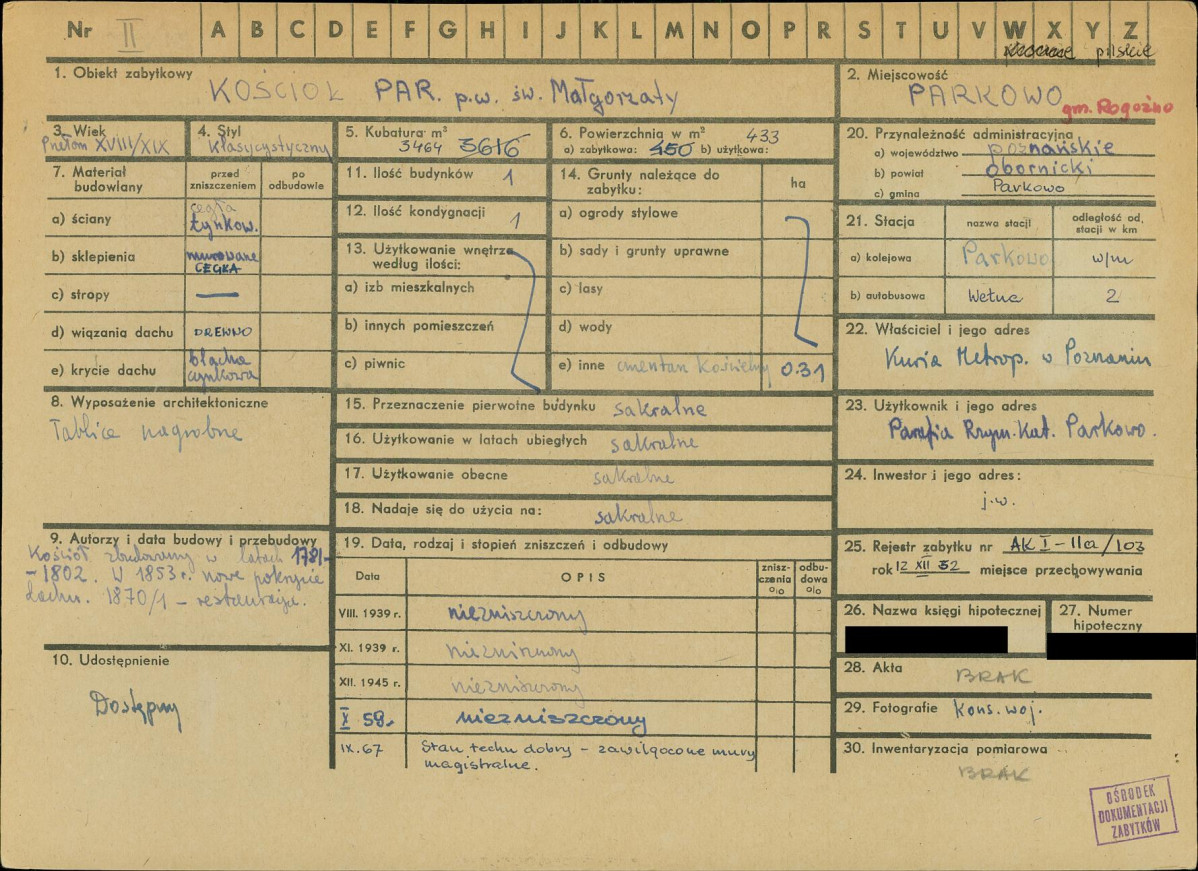 Nr II A B C D E F G H I J K L M N O P R S T U V W X Y Z
pilskie
1. Obiekt zabytkowy KOŚCIOŁ PAR. p.w. św. Małgorzaty
2. Miejscowość
PARKOWO gm. Rogoźno
3. Wiek
Przełom XVIII/XIX
4. Styl
klasycystyczny
5. Kubatura m³
3464 3616
6. Powierzchnia w m² 433
a) zabytkowa: 450 b) użytkowa:
7. Materiał budowlany
przed zniszczeniem
po odbudowie
a) ściany cegła tynkow.
b) sklepienia murowane CEGŁA
c) stropy —
d) wiązania dachu DREWNO
e) krycie dachu blacha cynkowa
8. Wyposażenie architektoniczne
Tablice nagrobne
9. Autorzy i data budowy i przebudowy
Kościół zbudowany w latach 1781-
-1802. W 1853 r. nowe pokrycie
dachu. 1870/1 – restauracja.
10. Udostępnienie
Dostępny
11. Ilość budynków 1
12. Ilość kondygnacji 1
13. Użytkowanie wnętrza
według ilości:
a) izb mieszkalnych
b) innych pomieszczeń
c) piwnic
14. Grunty należące do
zabytku:
ha
a) ogrody stylowe
b) sady i grunty uprawne
c) lasy
d) wody
e) inne cmentarz kościelny 0.31
15. Przeznaczenie pierwotne budynku sakralne
16. Użytkowanie w latach ubiegłych sakralne
17. Użytkowanie obecne sakralne
18. Nadaje się do użycia na: sakralne
19. Data, rodzaj i stopień zniszczeń i odbudowy
Data OPIS znisz-czenia % odbu-dowa %
VIII. 1939 r. niezniszczony
XI. 1939 r. niezniszczony
XII. 1945 r. niezniszczony
X 59r. niezniszczony
IX. 67 Stan techn dobry – zawilgocone mury
magistralne.
20. Przynależność administracyjna
a) województwo poznańskie
b) powiat obornicki
c) gmina Parkowo
21. Stacja
nazwa stacji
odległość od, stacji w km
a) kolejowa Parkowo w/m
b) autobusowa Wełna 2
22. Właściciel i jego adres
Kuria Metrop. w Poznaniu
23. Użytkownik i jego adres
Parafia Rzym. Kat. Parkowo.
24. Inwestor i jego adres:
j.w.
25. Rejestr zabytku nr AK I-11a/103
rok 12 XII 32 miejsce przechowywania
26. Nazwa księgi hipotecznej
27. Numer
hipoteczny
28. Akta BRAK
29. Fotografie Kons. woj.
30. Inwentaryzacja pomiarowa
BRAK
OŚRODEK
DOKUMENTACJI
ZABYTKÓW